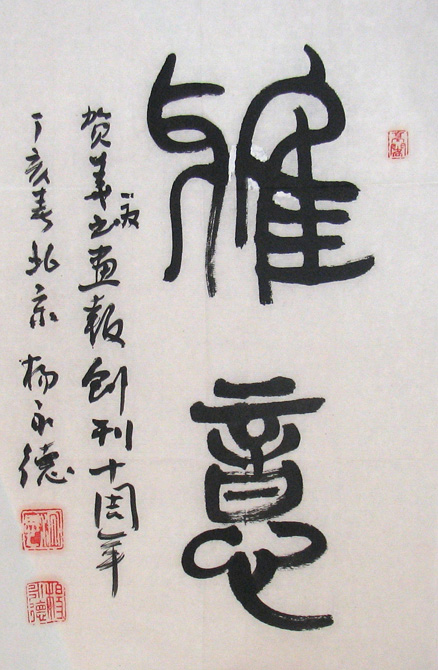 雅意
贺羲之画报创刊十周年
丁亥春北京杨永德